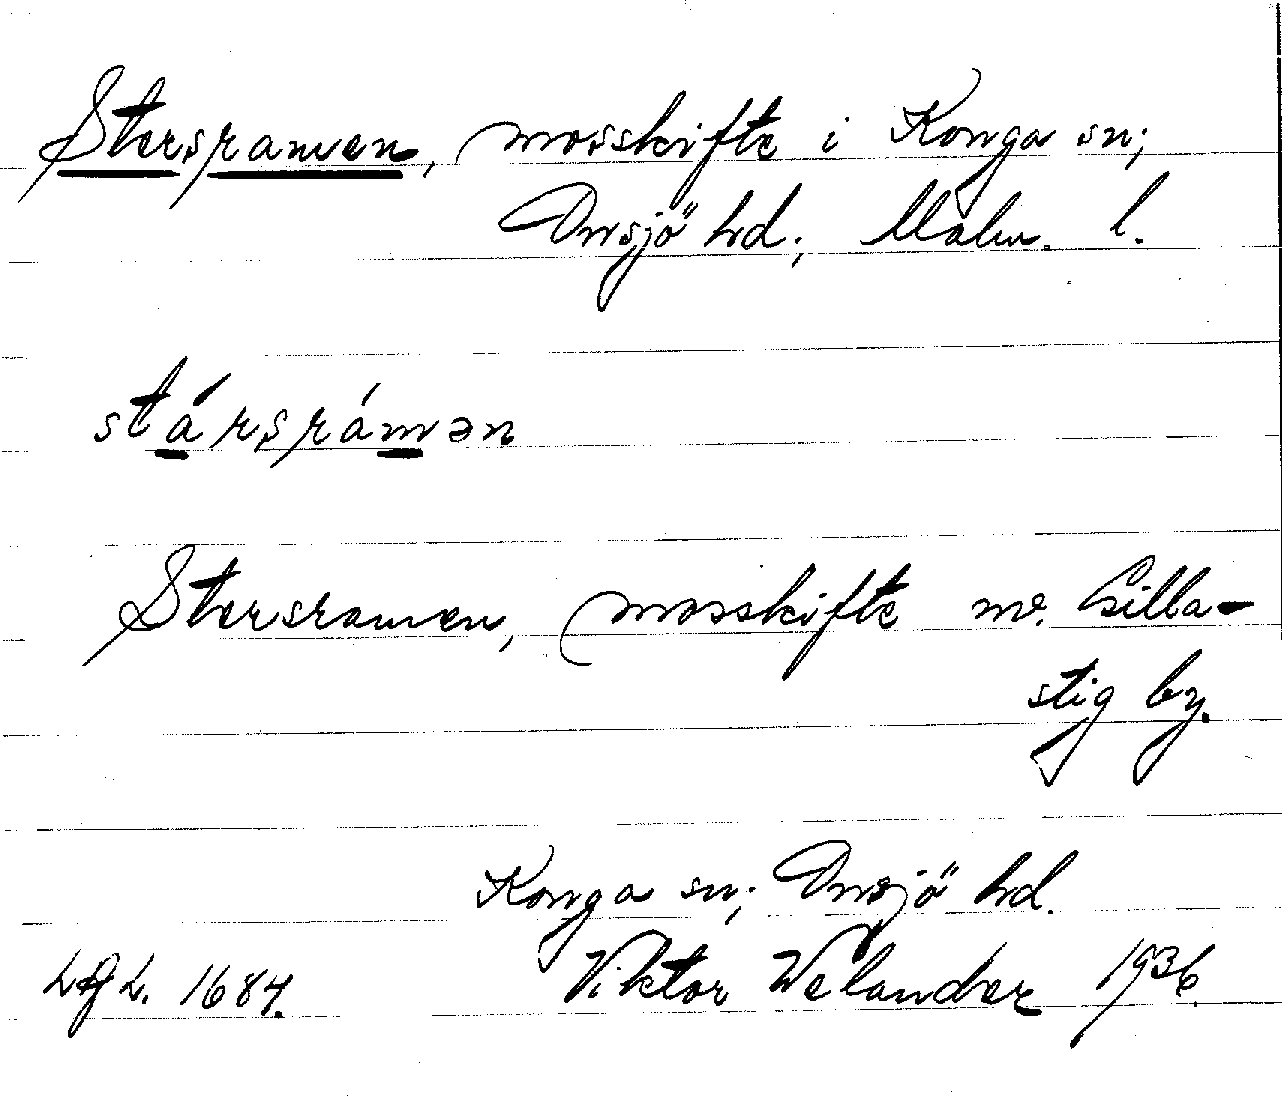 Stersramen, mosskifte i Konga sn;
Onsjö hd; Malm. l.
stársrámən
Stersramen, mosskifte nv. Gilla-
stig by.
Konga sn; Onsjö hd.
L 1684. Viktor Welander 1936.